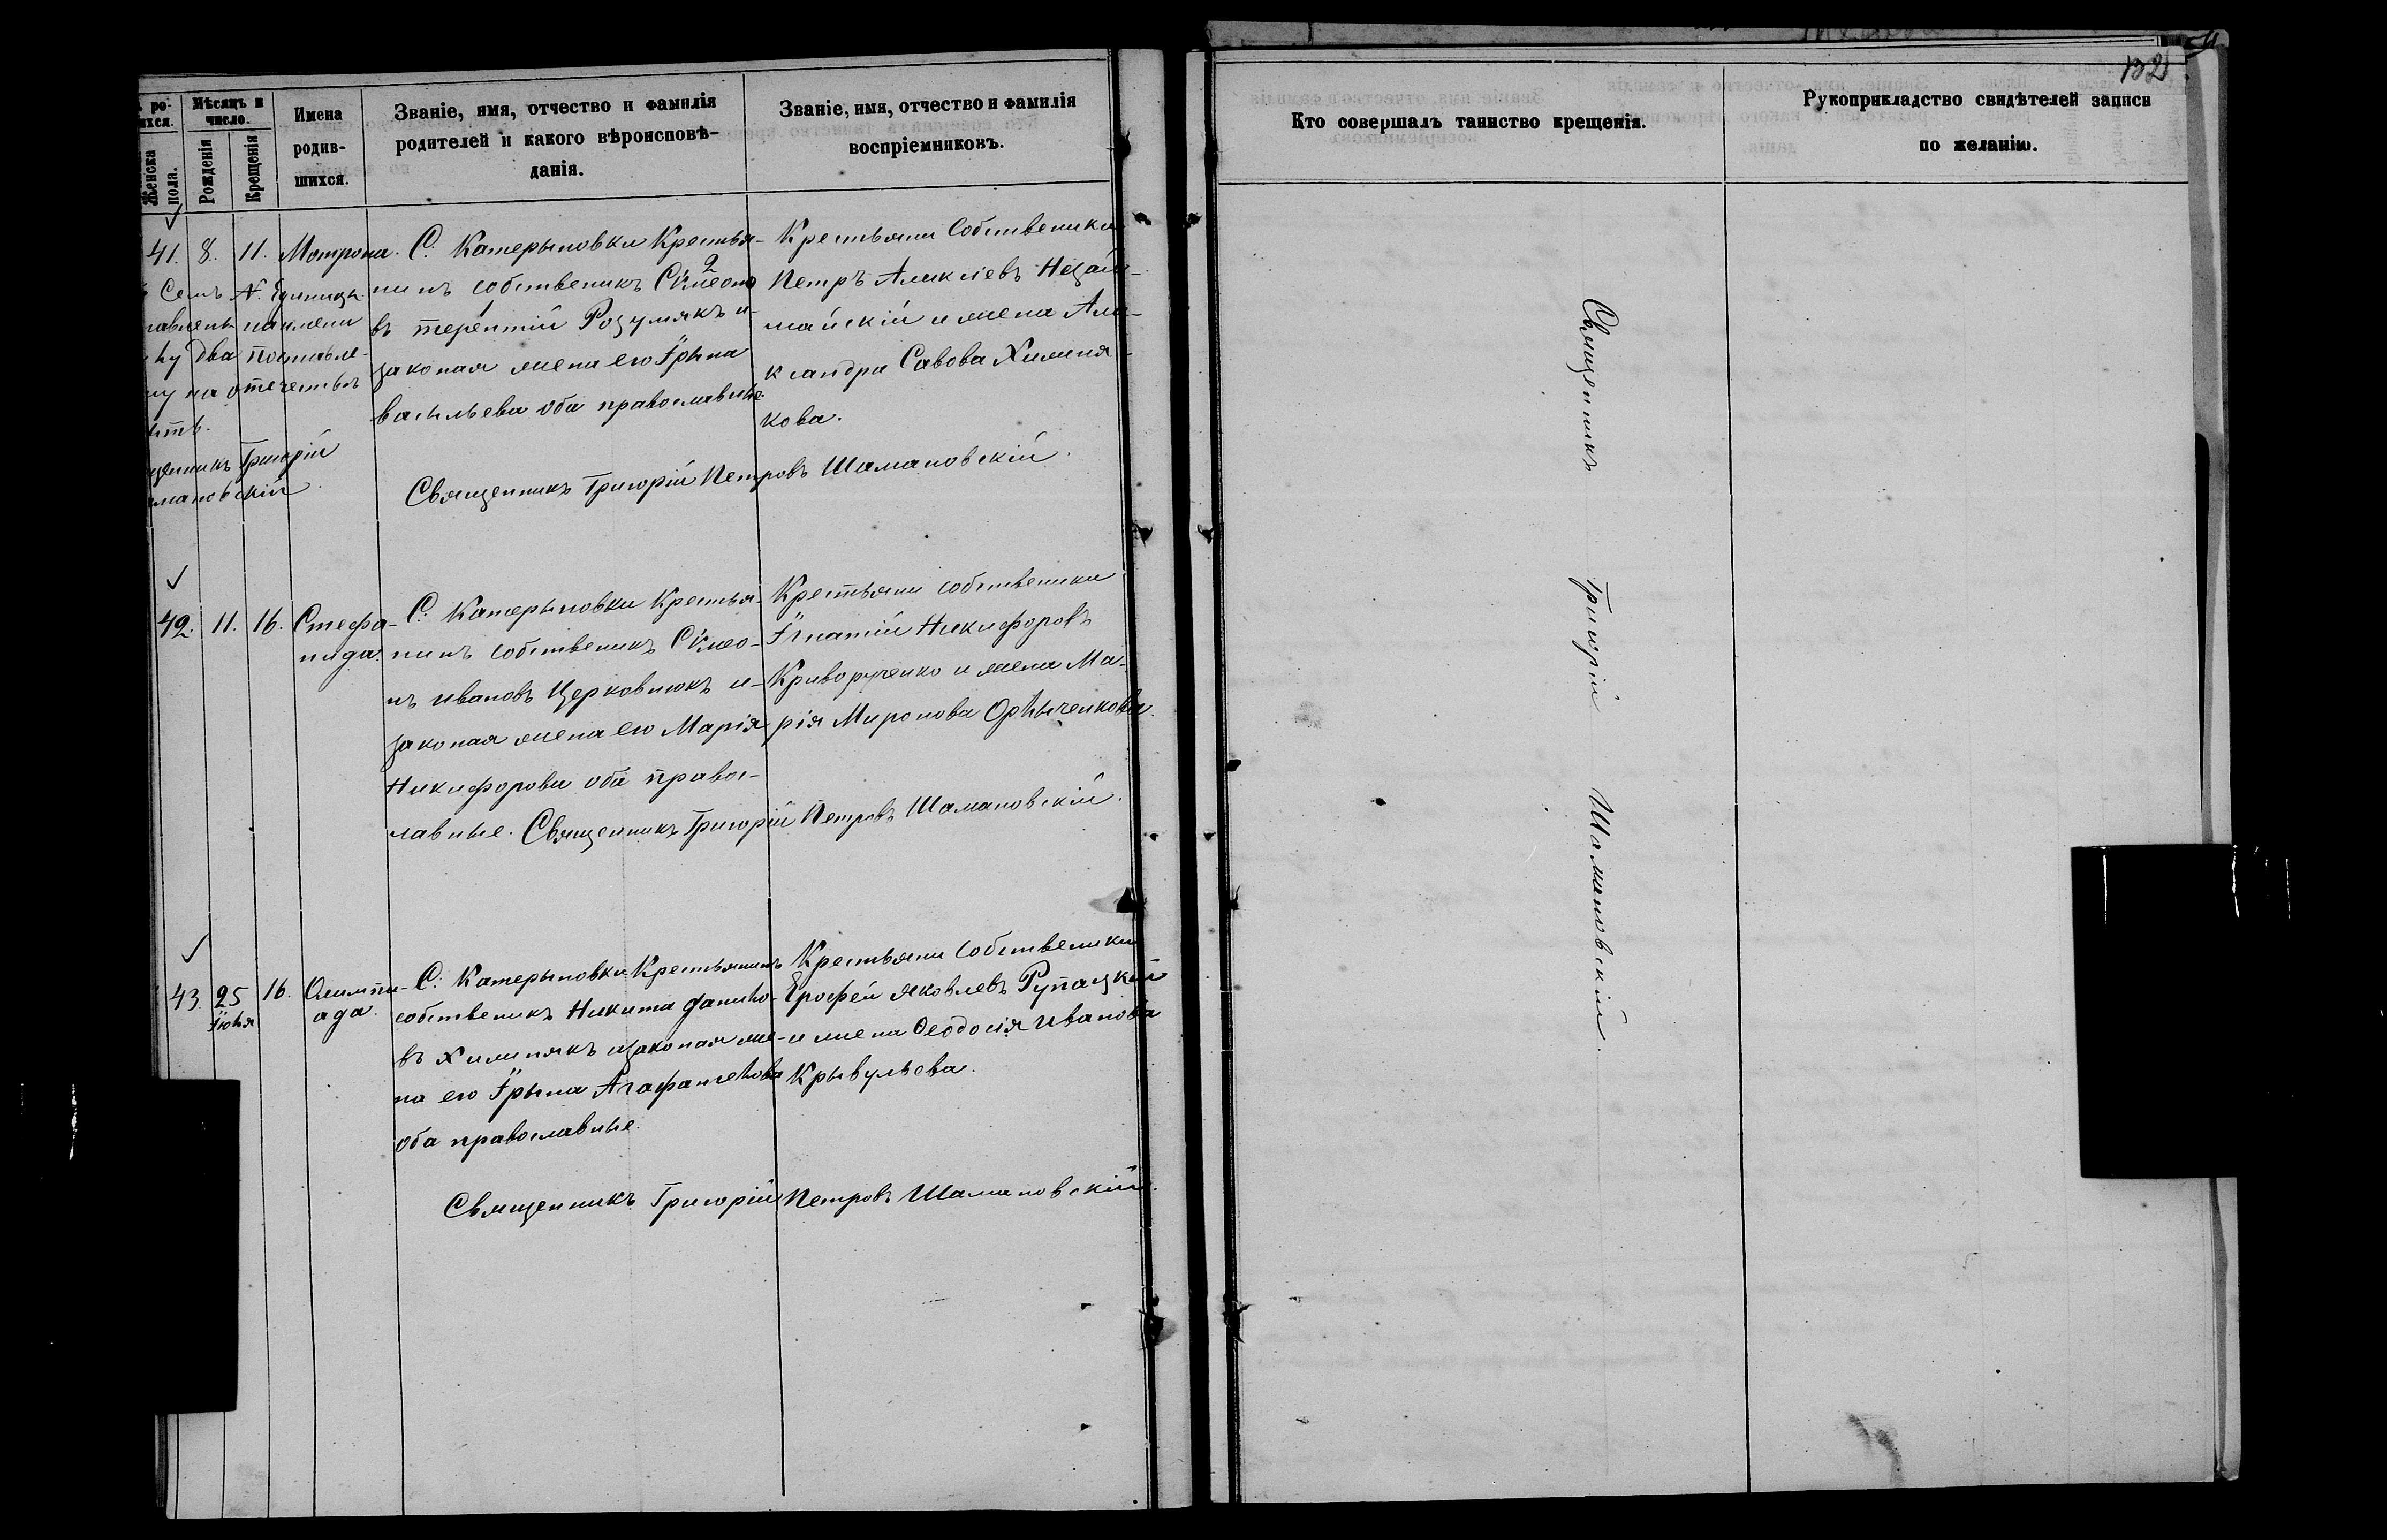 ро-
ихся.
Женска
пола.
Мѣсяцъ и
число.
Рожденія
Крещенія
Имена
родив-
шихся.
Званіе, имя, отчество и фамилія
родителей и какого вѣроисповѣ-
данія.
Званіе, имя, отчество и фамилія
воспріемниковъ.
41. 8. 11. Мотрона.
С. Катерыновки Крестья-
нинъ собственикъ Сѵмеоно
въ терентій Розумякъ и
законая жена его Ірына
васильева оба православные.
Крестьяни Собственики
Петръ Алексіевъ Незай-
майскій и жена Але-
ксандра Савова Химиня-
кова.
два поставле-
ну на отечествѣ
щенникъ Григорій
мановскій.
Священникъ Григорій Петровъ Шамановскій.
42. 11. 16. Стефа-
нида.
С. Катерыновки Крестья-
нинъ собственикъ Сѵмео-
нъ ивановъ Церковнюкъ и
законая жена его Марія
Никифорова оба право-
славные. Священникъ Григорій Петровъ Шамановскій.
Крестьяни собственики
Ігнатій Никифоровъ
Криворученко и жена Ма-
рія Миронова
43. 25 16. Олимпи-
Іюня ада.
С. Катерыновки Крестьянинъ
собственикъ Никита данило-
въ Химинякъ изаконая же-
на его Ірына Агафангелова
оба православные.
Крестьяни Собственики
Ерофей яковлевъ Рупацкій
и жена Ѳеодосія Иванова
Крывульева.
Священникъ Григорій Петровъ Шамановскій.
132
Кто совершалъ таинство крещенія.
Рукоприкладство свидѣтелей записи
по желанію.
Священникъ Григорій Шамановскій.